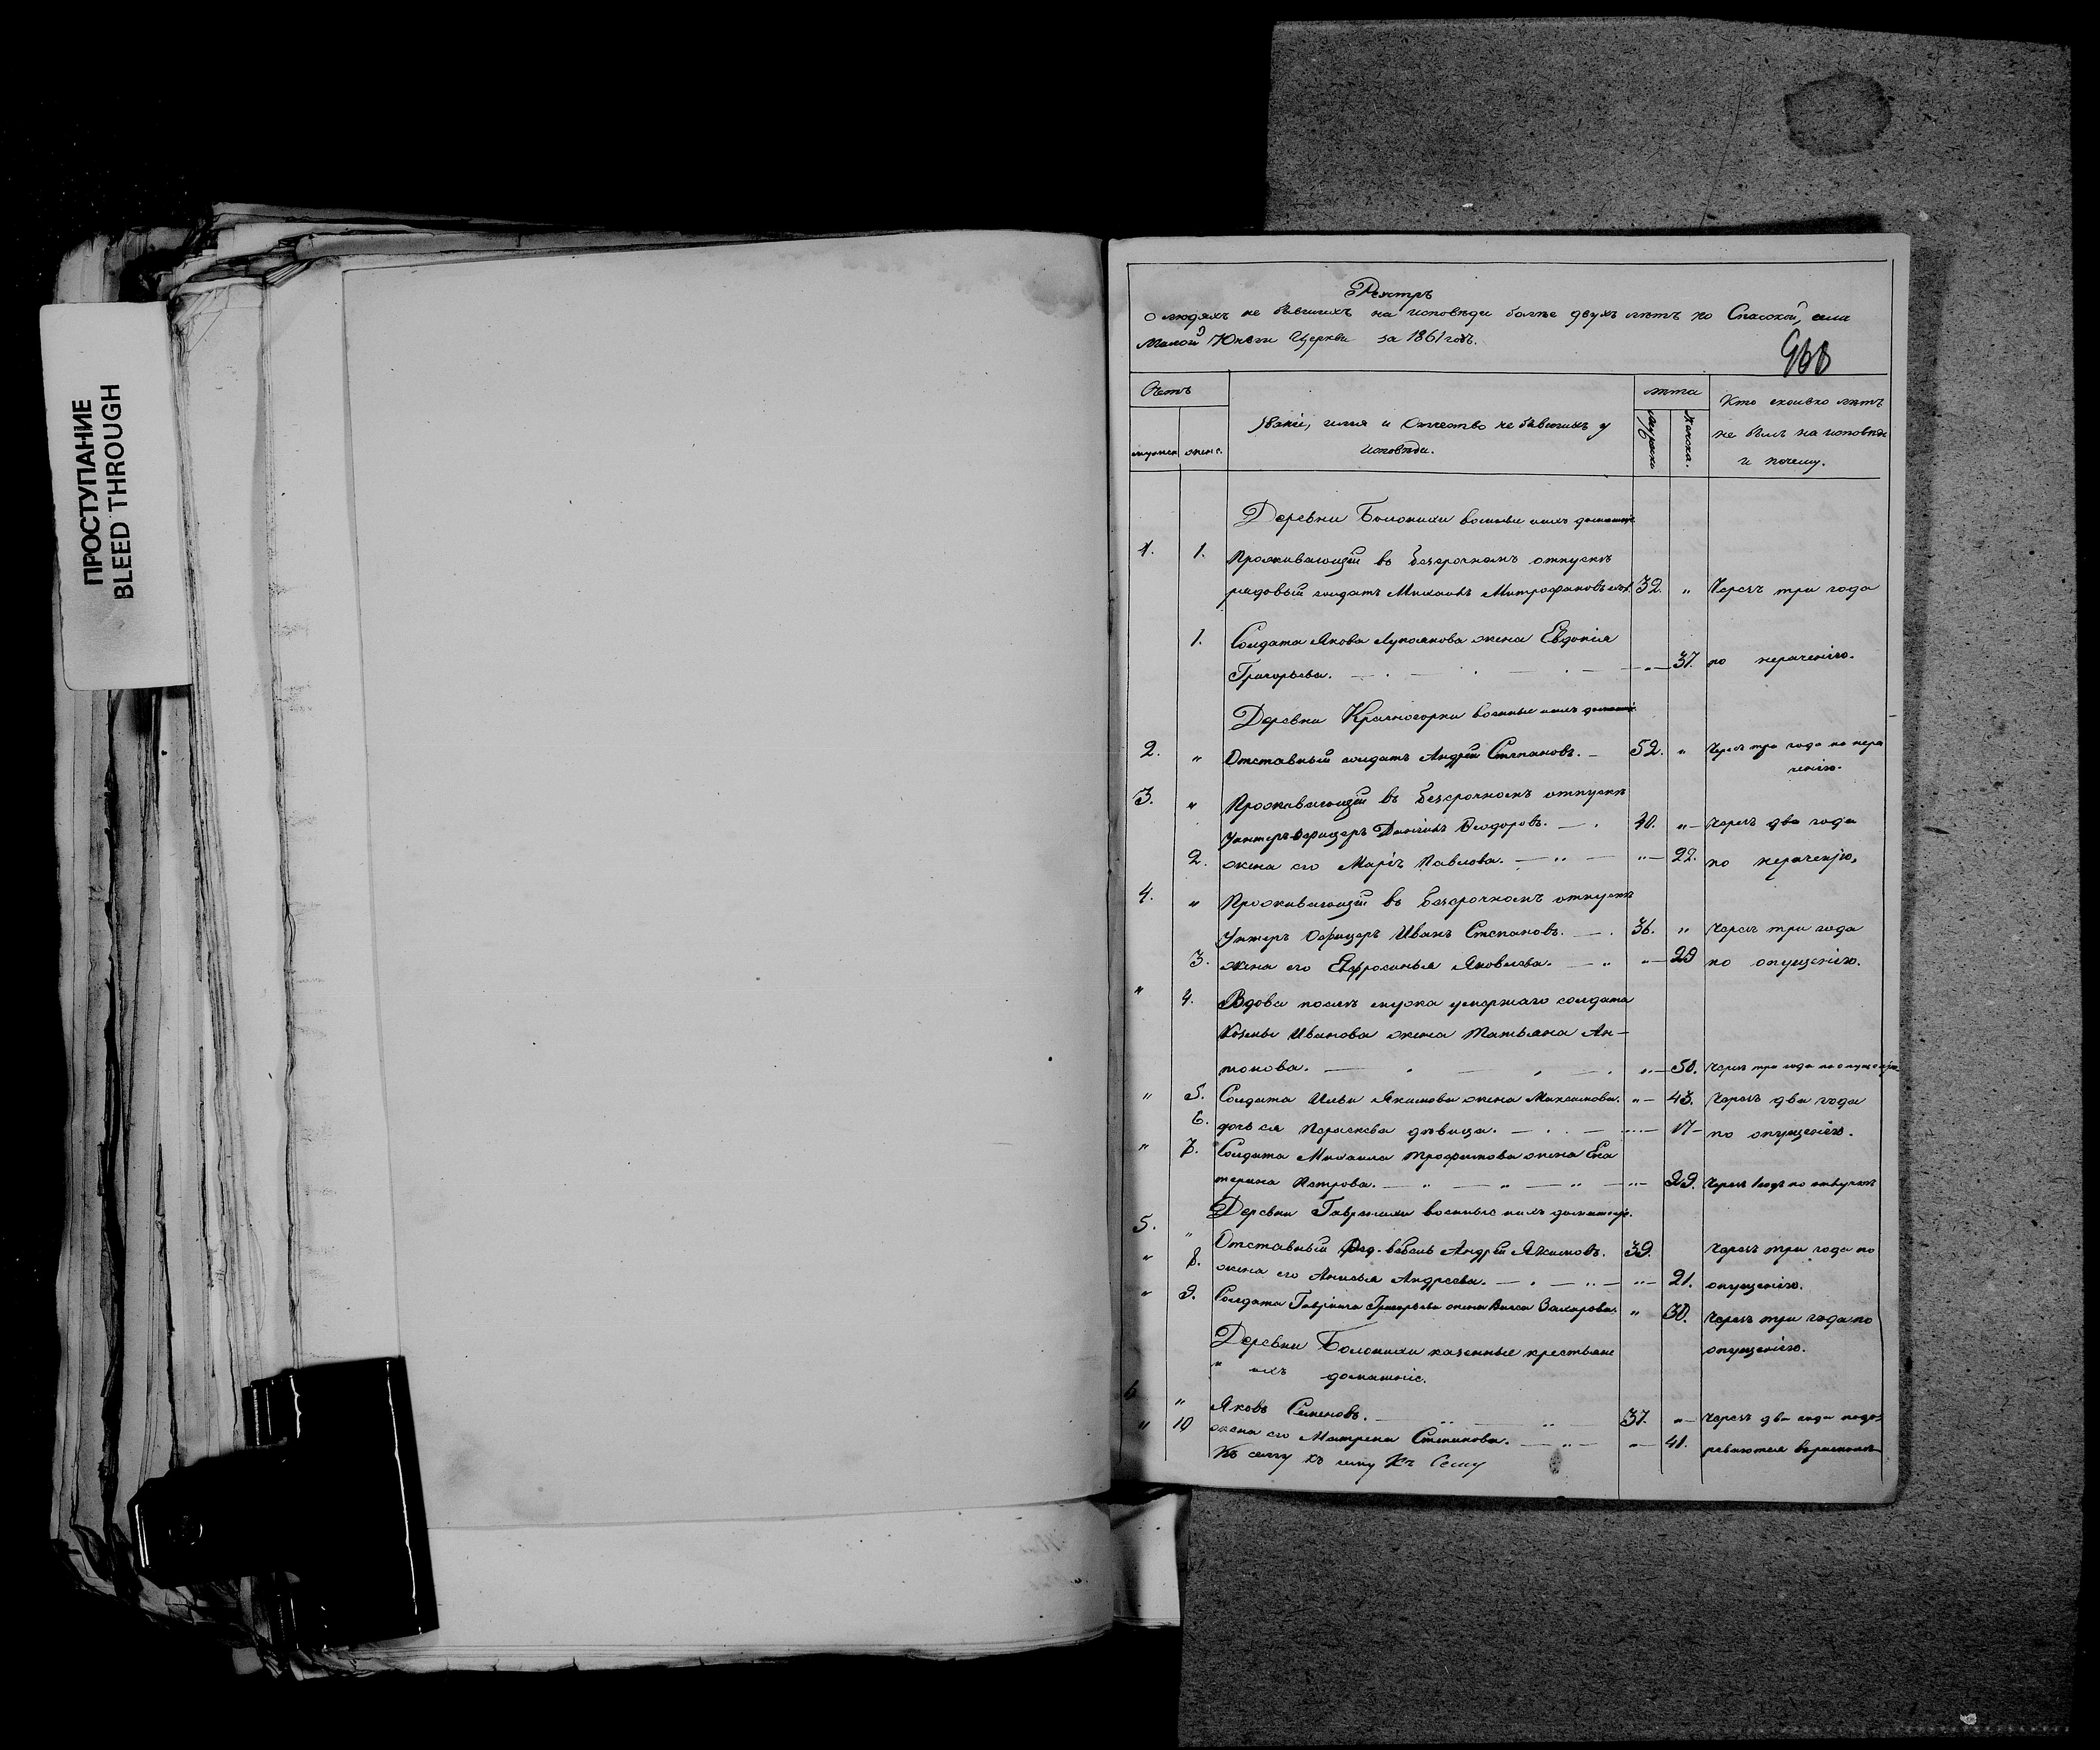 ПРОСТУПАНИЕ
BLEED THROUGH
Реэстръ
О людяхъ не бывшихъ на исповѣди болѣе двухъ лѣтъ по Спасской, села
Малой Юнги Церкви за 1861 годъ.
Счетъ
лѣта
Кто сколько лѣтъ
не былъ на исповѣди
и почему.
Званіе, имя и Отчество не бывшихъ у
исповѣди.
Деревни военные ихъ домашніе
1. 1. Проживающій въ безсрочномъ отпускѣ
рядовый солдатъ Михаилъ Митрофановъ 32. " Черезъ три года
1. Солдата Якова Лукоянова жена Евдокія
Григорьева. — " — 37. по нераченію.
Деревни Красногорки военные ихъ домашніе
2. " Отставный солдатъ Андрей Степановъ. — 52. " Черезъ три года по нера
ченію.
3. " Проживающій въ безсрочномъ отпускѣ
Унтеръ-Офицеръ Ѳеодоровъ. — 40. " — Черезъ два года
2. жена его Марія Павлова. — " — " — 22. по нераченію.
4. " Проживающій въ безсрочномъ отпускѣ
Унтеръ Офицеръ Иванъ Степановъ. — 36. " Черезъ три года
3. жена его Евфросинья Яковлева. — " " — 29 по опущенію.
" 4. Вдова послѣ мужа умершаго солдата
Козьмы Иванова жена Татьяна Ан-
тонова. — " — 50. Черезъ три года по опущенію
" 5. Солдата Ильи Якимова жена Максимова. " — 43. Черезъ два года
6. дочь ея Параскева дѣвица. — " — 17 — по опущенію.
" 7. Солдата Михаила Трофимова жена Ека
терина Петрова. — " — " — " — " — 29. Черезъ 1 годъ по
Деревни военные ихъ домашніе.
5. " Отставный Андрей Якимовъ. 39. Черезъ три года по
" 8. жена его Анисья Андреева. — " — " — 21. опущенію.
" 9. Солдата Гавріила Григорьева жена Васса Захарова. " 30. Черезъ три года по
опущенію.
Деревни казенные крестьяне
" ихъ домашніе.
6 " Яковъ Семеновъ. — " " 37. " — Черезъ два года подо-
" 10 жена его Матрена Степанова. — " — " — 41. зреваются въ расколѣ
Къ сему къ сему Къ Сему